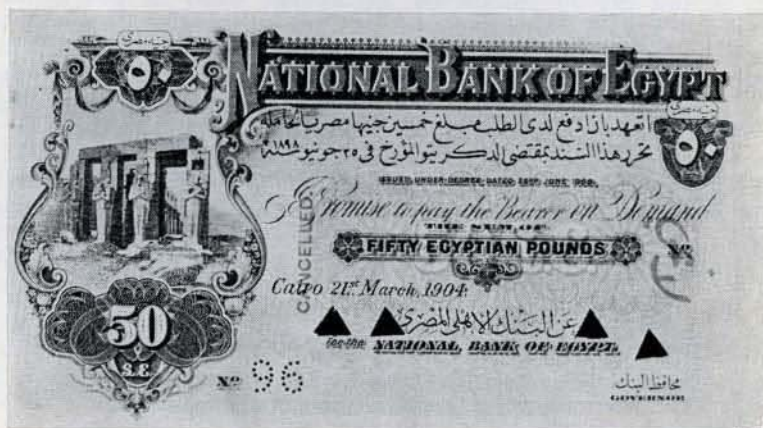 جنيه مصرى
٥٠
NATIONAL BANK OF EGYPT
جنيه مصرى
٥٠
اتعهد بان ادفع لدى الطلب مبلغ خمسين جنيها مصريا لحامله
تحرر هذا السند بمقتضى الدكريتو المؤرخ فى ٢٥ جونيو سنة ١٨٩٨
ISSUED UNDER DECREE DATED 25TH JUNE 1898.
I Promise to pay the Bearer on Demand
THE SUM OF
FIFTY EGYPTIAN POUNDS
Nº
CANCELLED
Cairo 21st March, 1904.
50
£E
عن البنك الاهلى المصرى
For the NATIONAL BANK OF EGYPT.
Nº 96
محافظ البنك
GOVERNOR